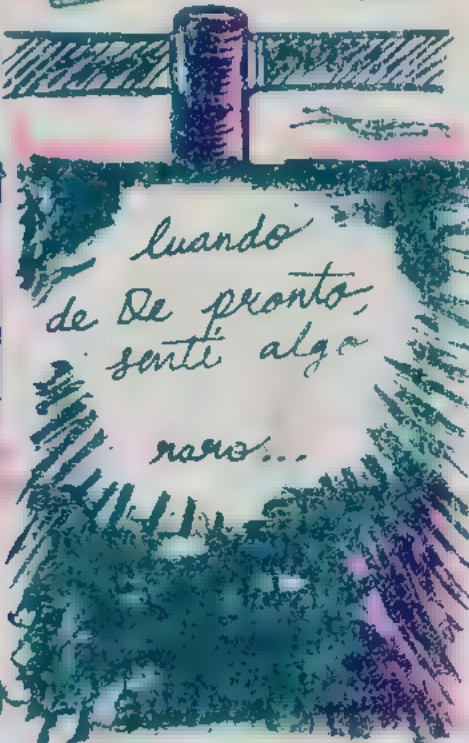 Cuando
de De pronto,
sentí algo
raro...